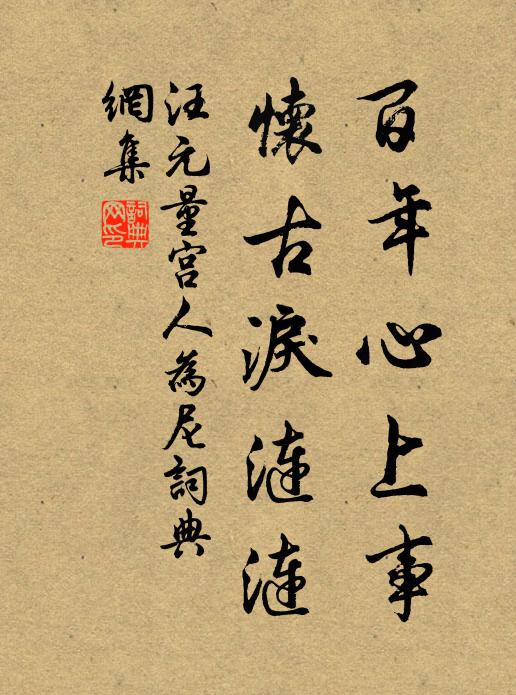 百年心上事
懷古淚漣漣
汪元量宮人為尼詞典
網集
詞典
网印